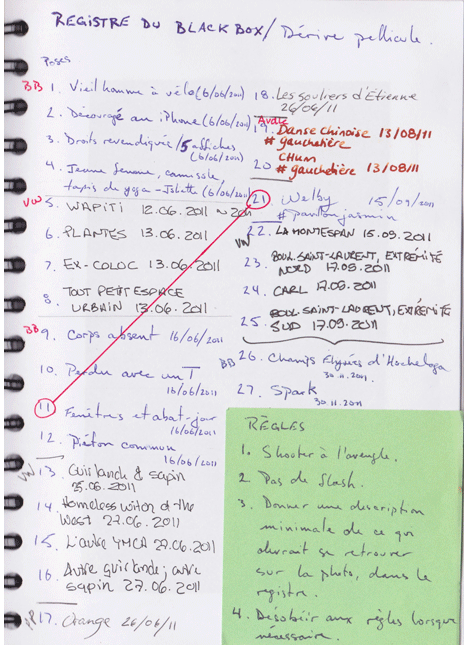 REGISTRE DU BLACK BOX / Dérive pellicule.
Poses
BB 1. Vieil homme à vélo (6/06/2011)
2. Découragé au iPhone (6/06/2011)
3. Droits revendiqués / 5 affiches
(6/06/2011)
4. Jeune femme, camisole,
tapis de yoga - (6/06/2011)
VW 5. WAPITI 12.06.2011
6. PLANTES 13.06.2011
7. EX-COLOC 13.06.2011
8. TOUT PETIT ESPACE
URBAIN 13.06.2011
BB 9. Corps absent 16/06/2011
10. Perdu avec un T
16/06/2011
11 Fenêtres et abat-jour
16/06/2011
12. Piéton commun
16/06/2011
VW 13. Guirlande & sapin
25.06.2011
14. Homeless witch of the
West 27.06.2011
15. L'autre YMCA 27.06.2011
16. Autre guirlande; autre
sapin 27.06.2011
17. Orange 26/06/11
18. Les souliers d'Étienne
26/06/11
19. Danse chinoise 13/08/11
# gauchetière
20 CHUM
# gauchetière 13/08/11
21 Welby 15/09/2011
# pantonjasmin
VW 22. LA MONTESPAN 15.09.2011
23. BOUL. SAINT-LAURENT, EXTRÉMITÉ
NORD 17.09.2011
24. CARL 17.09.2011
25. BOUL. SAINT-LAURENT, EXTRÉMITÉ
SUD 17.09.2011
BB 26. Champs Élysées d'Hochelaga
30.11.2011.
27. Spark
30.11.2011
RÈGLES
1. Shooter à l'aveugle.
2 Pas de flash.
3. Donner une description
minimale de ce qui
devrait se retrouver
sur la photo, dans le
registre.
4. Désobéir aux règles lorsque
nécessaire.